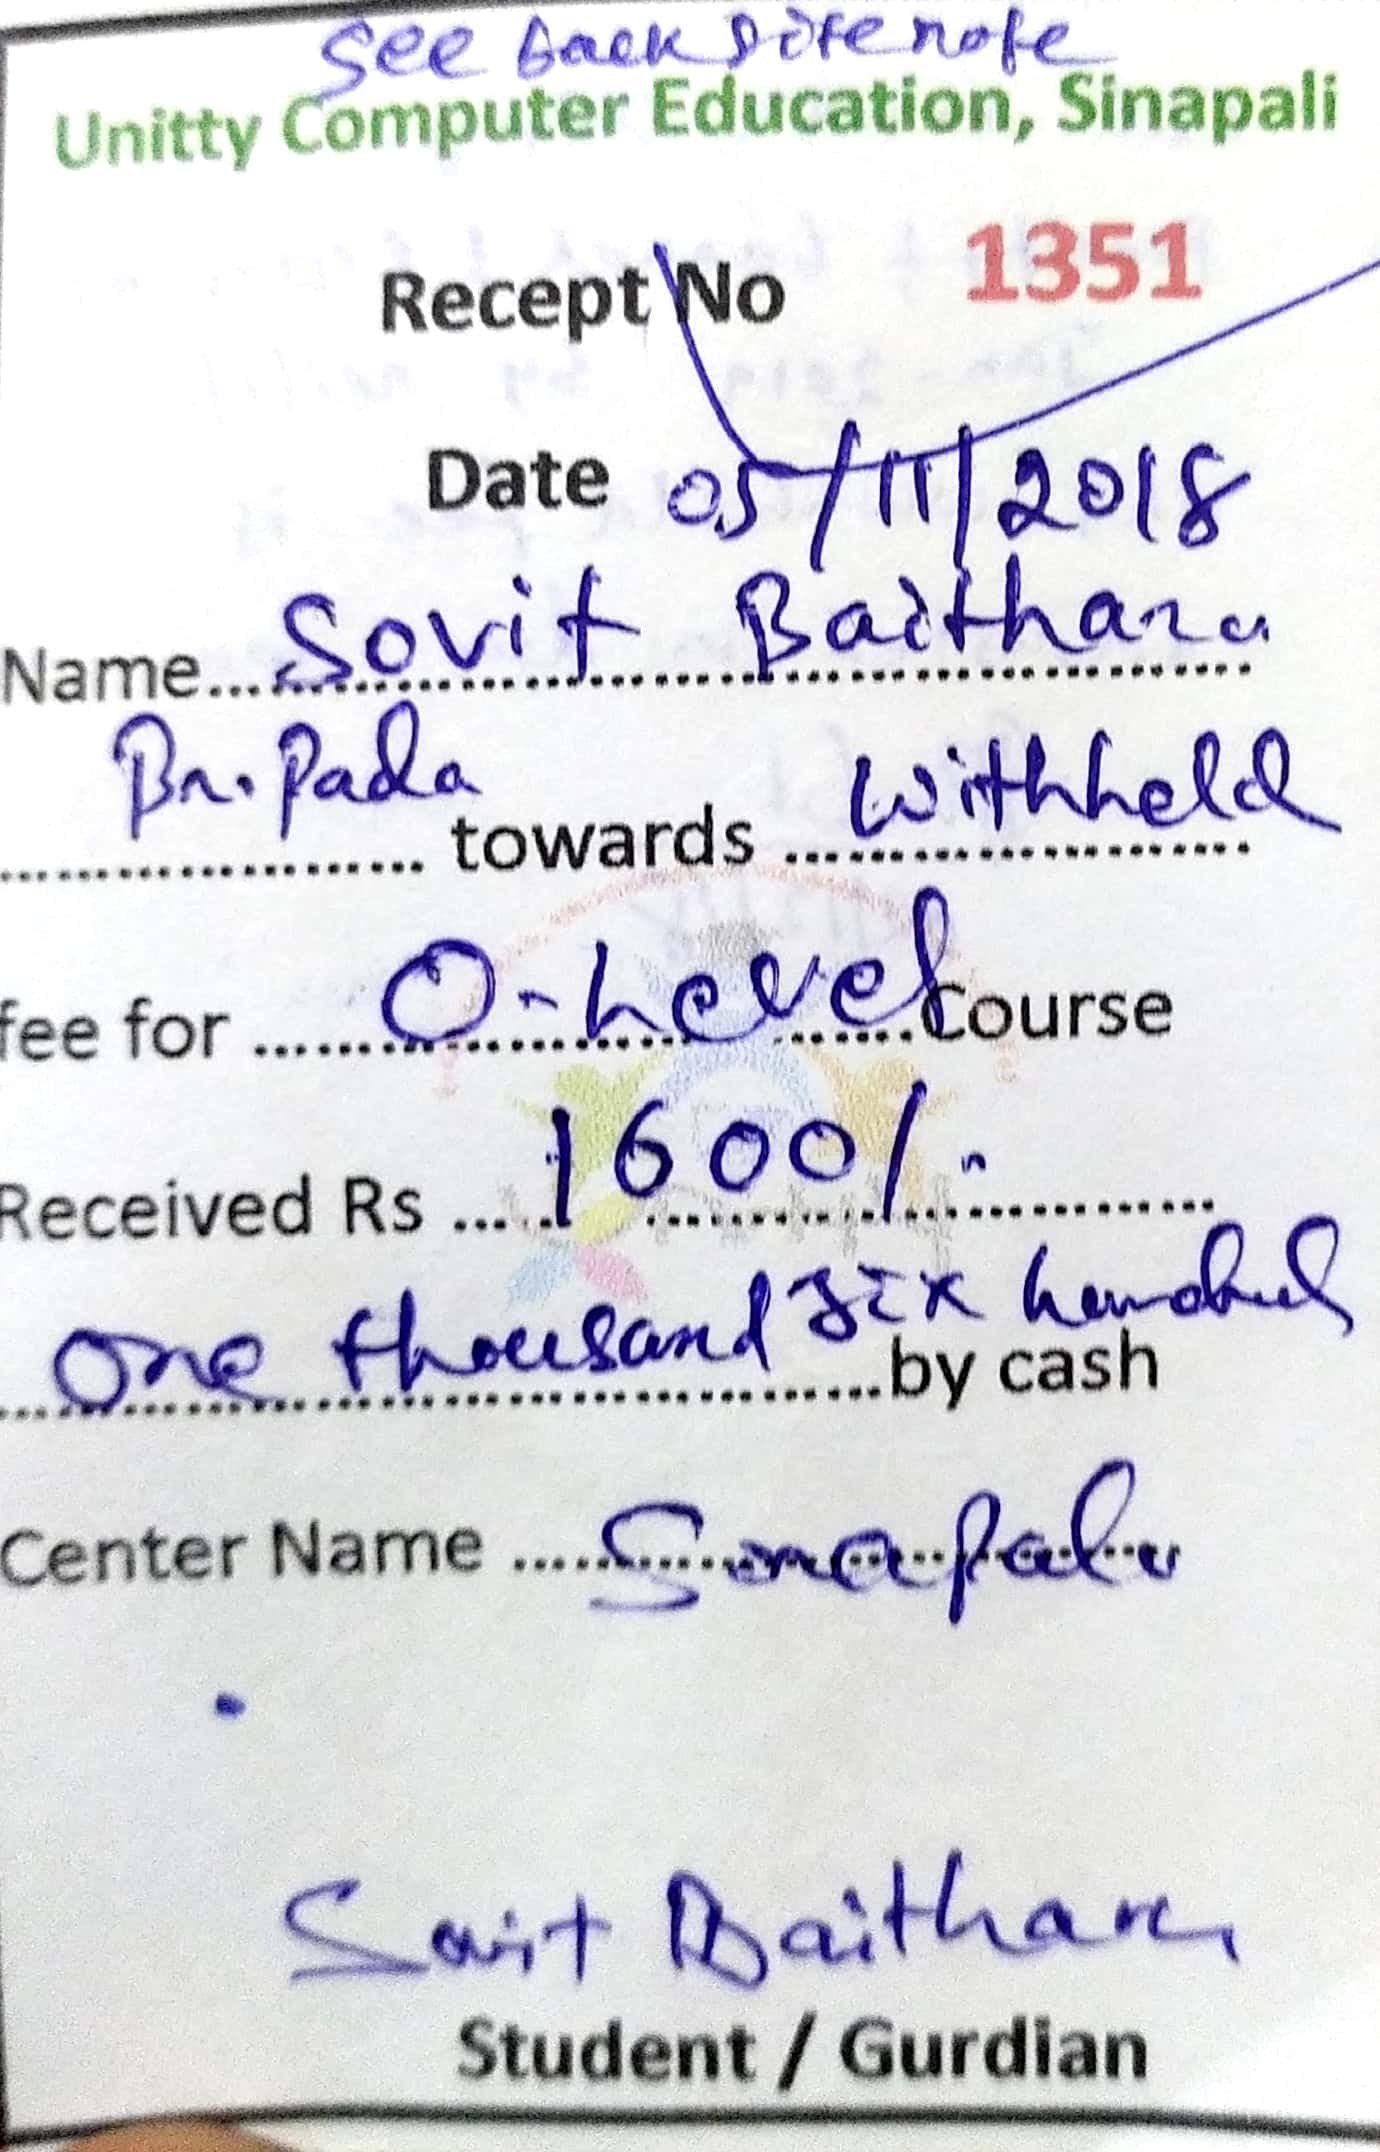 See back site note
Unitty Computer Education, Sinapali
Recept No 1351
Date 05/11/2018
Name... Sovit Baitharu
Br. Pada towards withheld
fee for O-Level Course
Received Rs 1600/-
One thousand six hundred by cash
Center Name Sinapali
Sovit Baitharu
Student / Gurdian